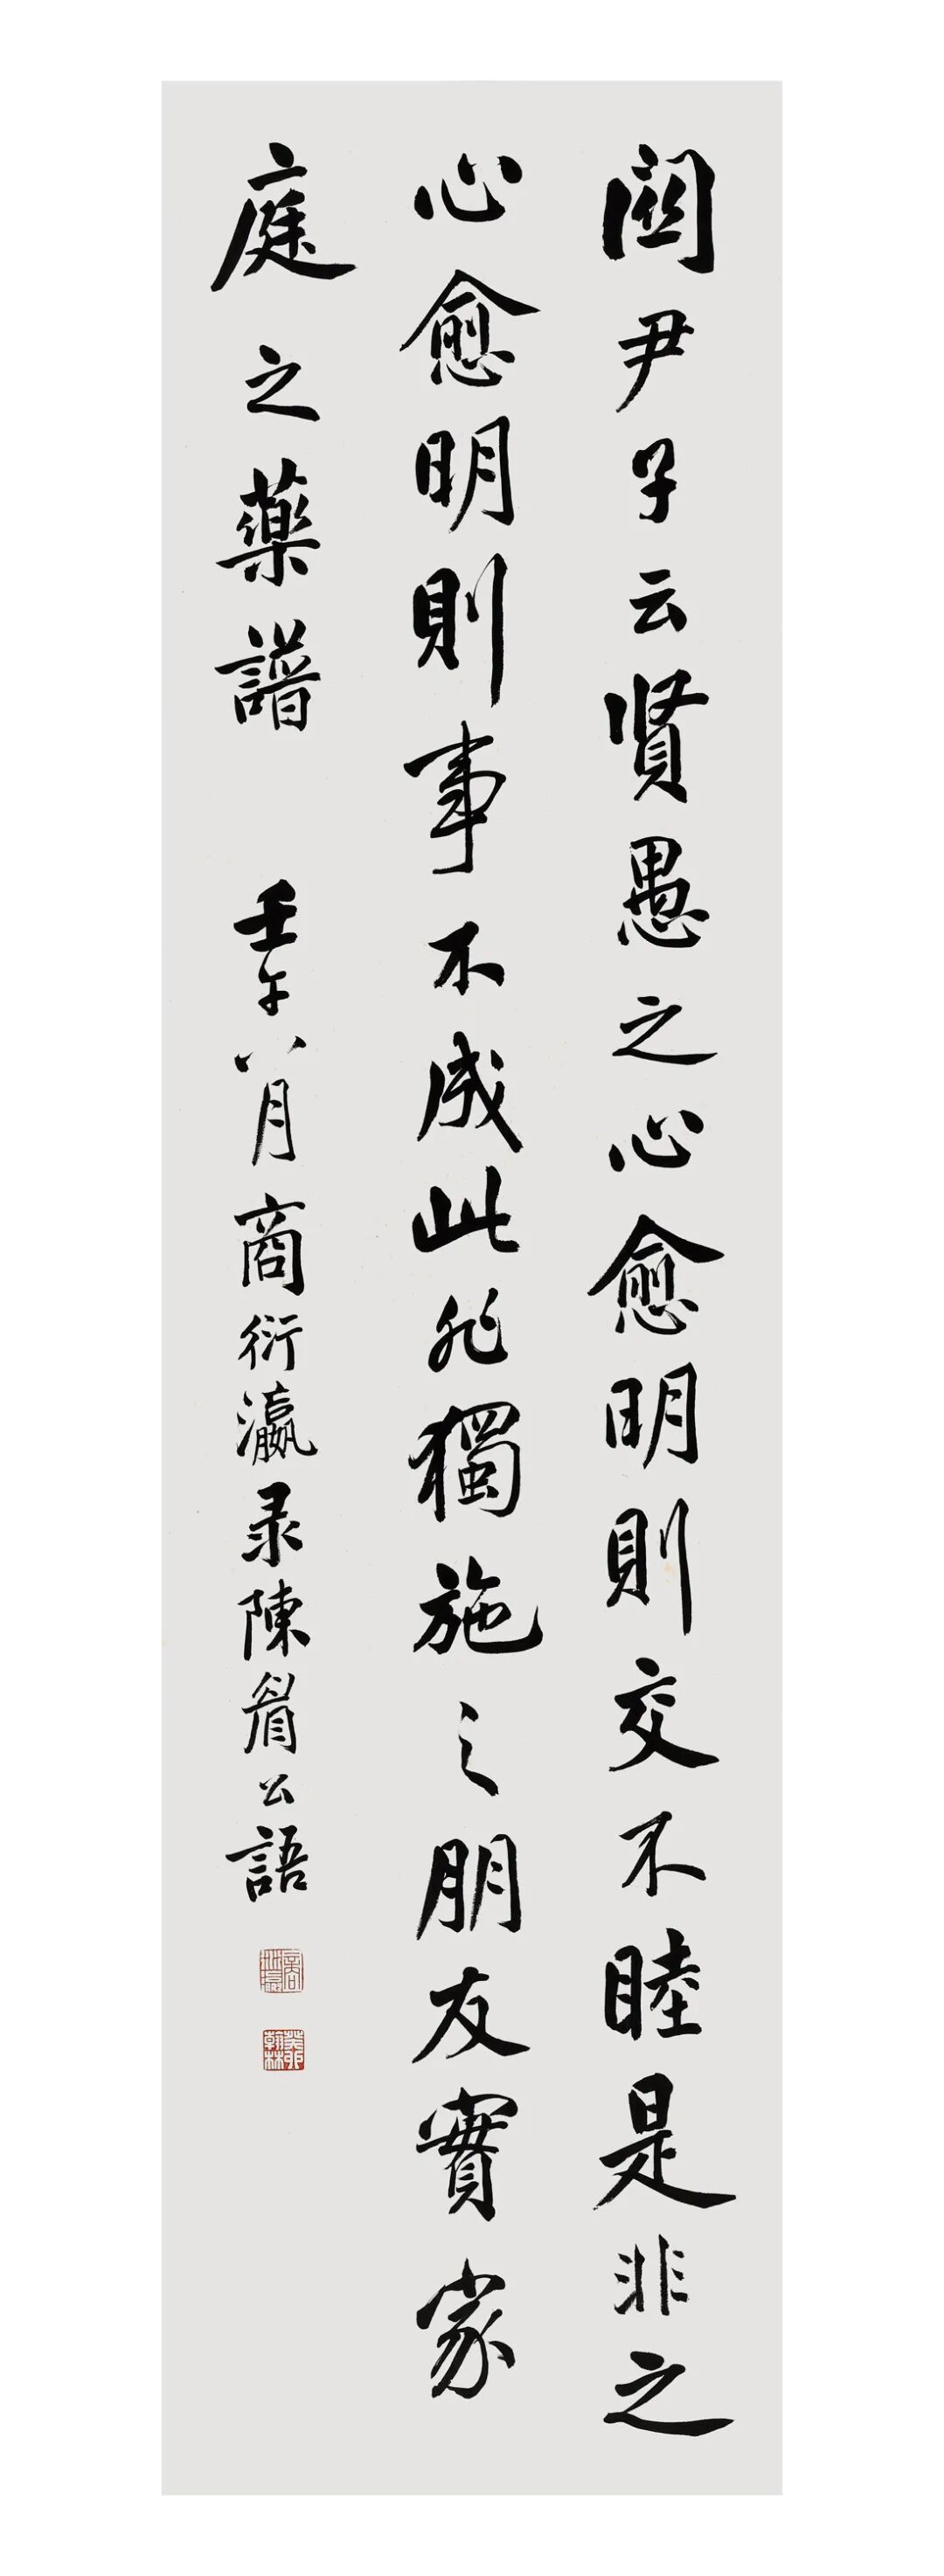 関尹子云賢愚之心愈明則交不睦是非之
心愈明則事不成此非獨施之朋友實家
庭之藥譜
壬午八月商衍瀛录陳眉公語